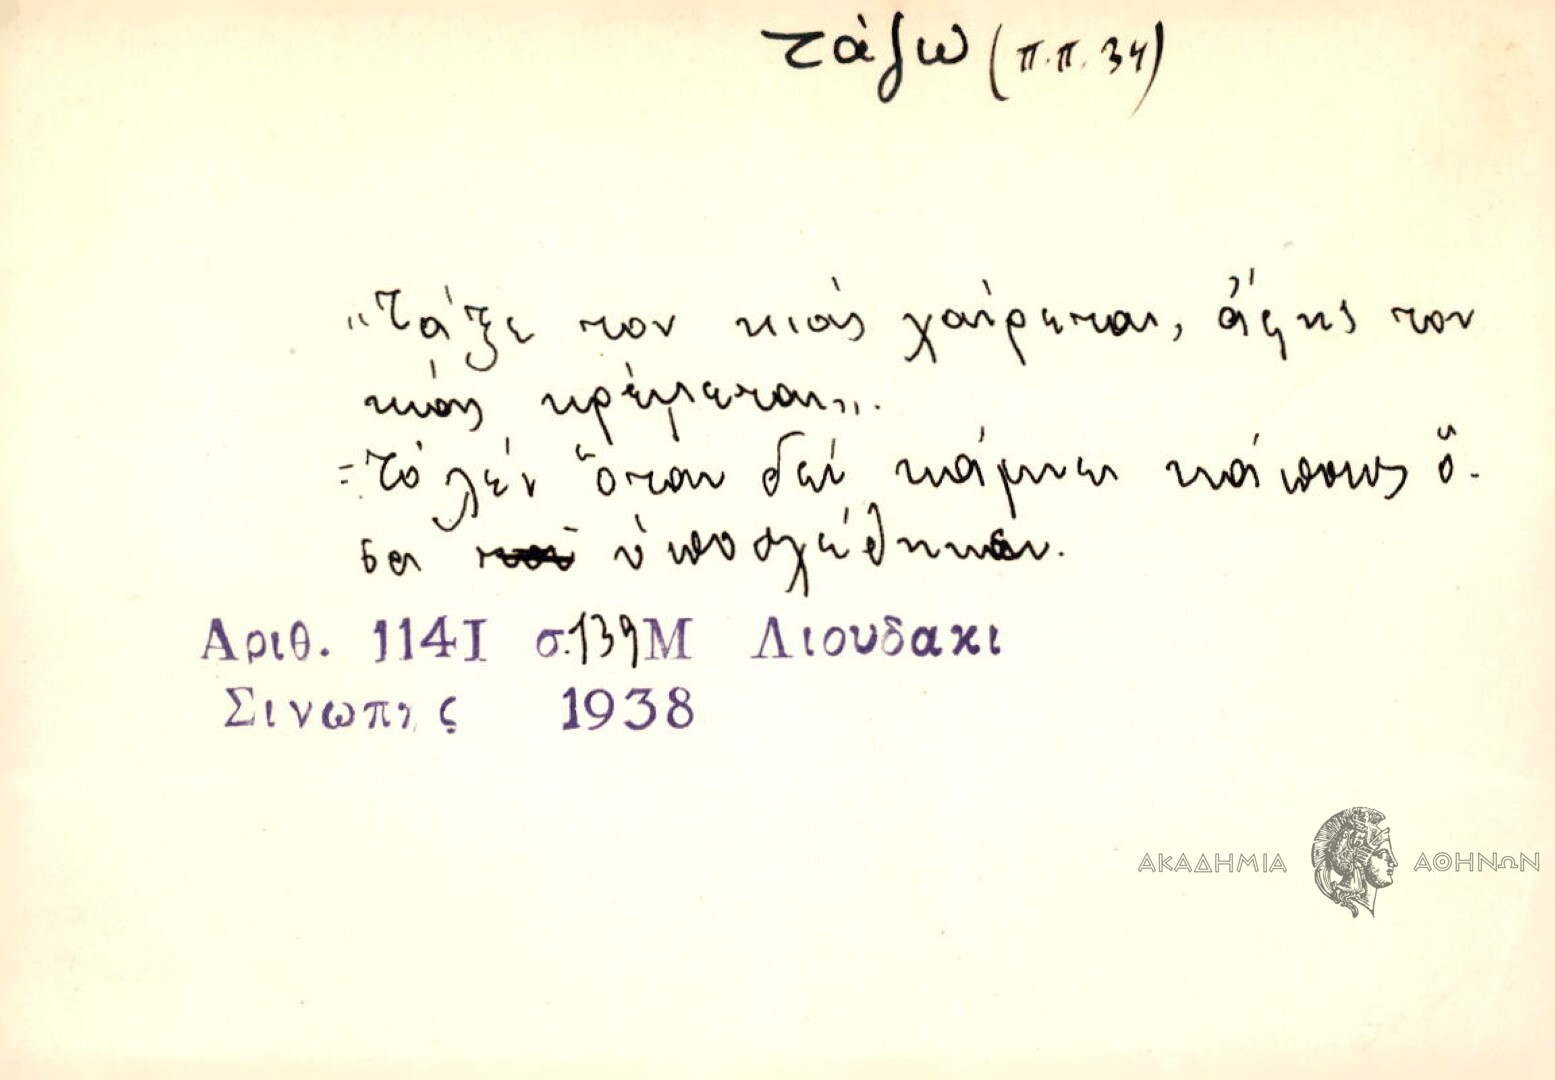 τάζω (π.π. 34)
"Τάξε τον κιάς χαίρεται, άφης τον
κιάς κρέμεται".
=Τό λέν όταν δεί κάμνει κάποιος ὅ-
σα ὑποσχέθηκεν.
Αριθ. 1141 σ.139 Μ Λιουδακι
Σινωπης 1938
ΑΚΑΔΗΜΙΑ ΑΘΗΝΩΝ